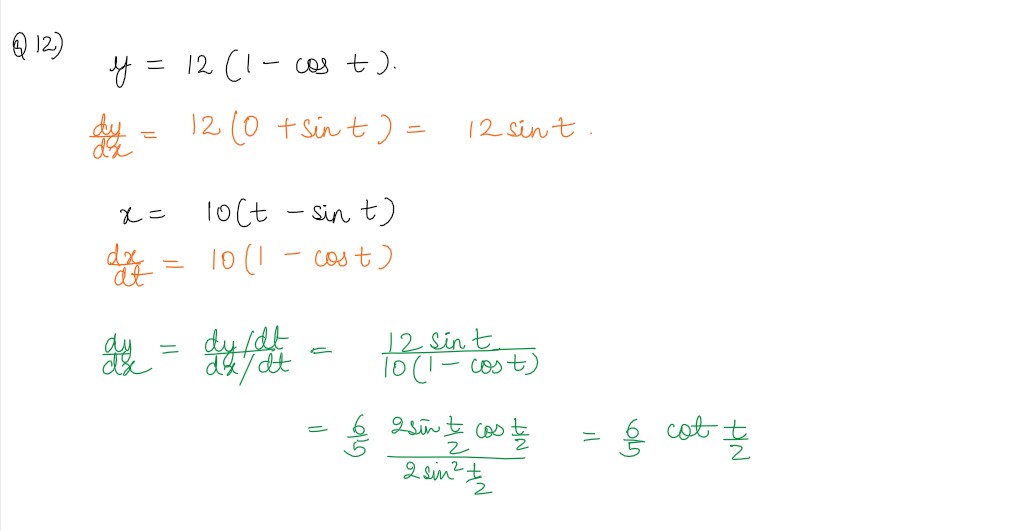 Q 12)
y = 12 (1 - cos t).
dy/dx = 12 (0 + sin t) = 12 sin t.
x = 10(t - sin t)
dx/dt = 10(1 - cos t)
dy/dx = (dy/dt)/(dx/dt) = (12 sin t)/(10(1 - cos t))
= 6/5 (2 sin t/2 cos t/2)/(2 sin² t/2) = 6/5 cot t/2